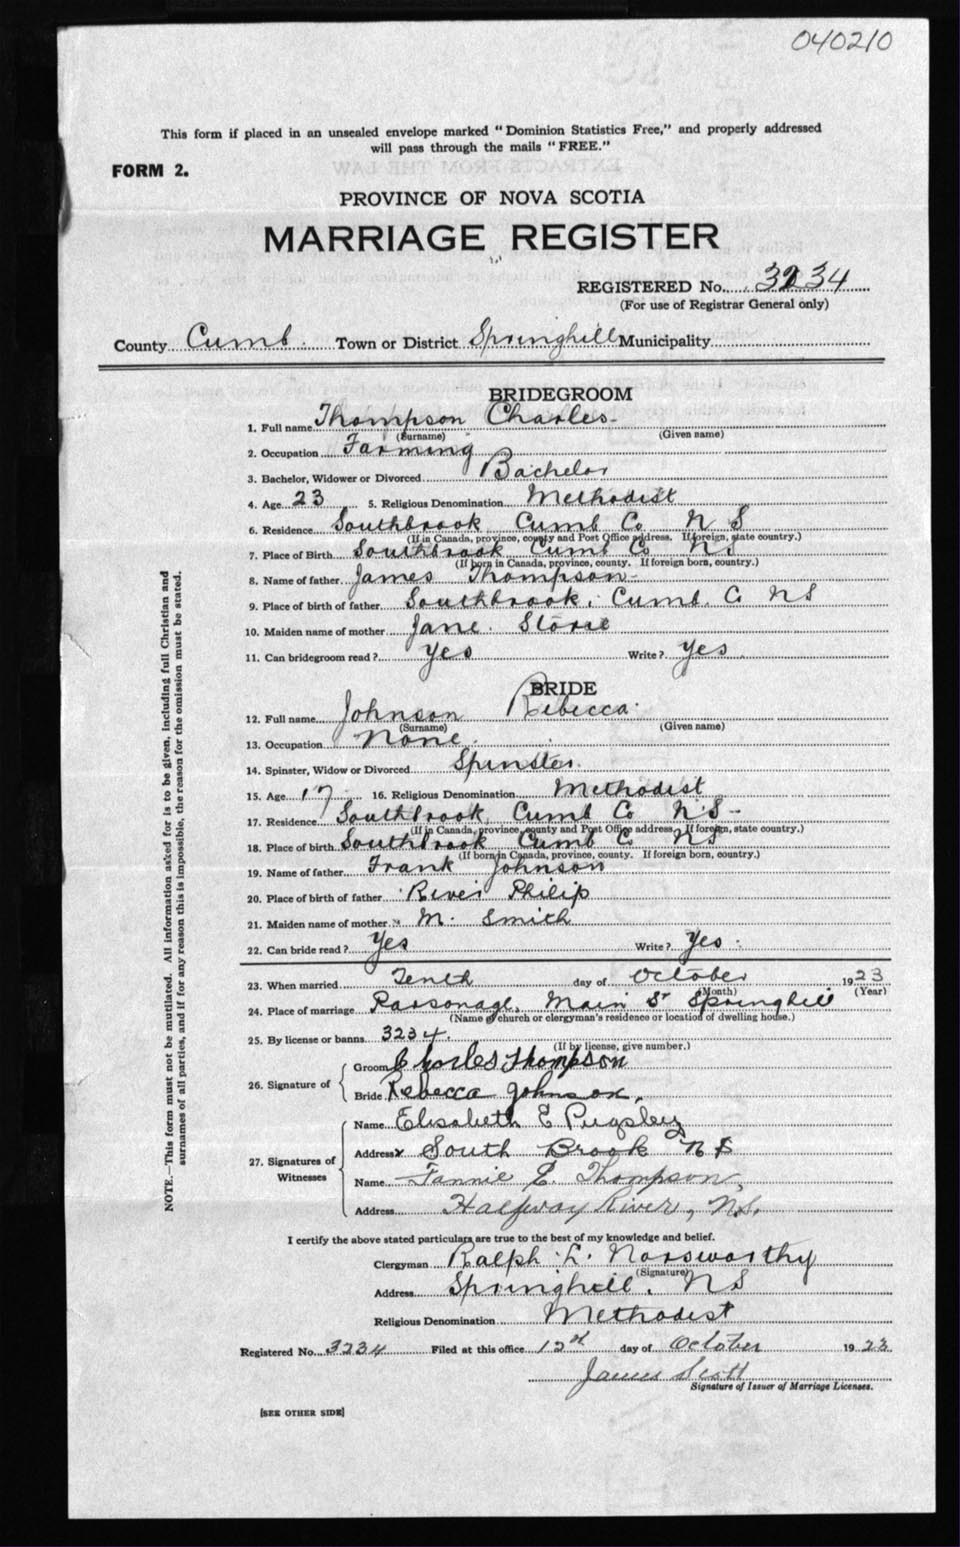 040210
This form if placed in an unsealed envelope marked "Dominion Statistics Free," and properly addressed
will pass through the mails "FREE."
FORM 2.
PROVINCE OF NOVA SCOTIA
MARRIAGE REGISTER
REGISTERED No. 3234
(For use of Registrar General only)
County Cumb. Town or District Springhill Municipality
BRIDEGROOM
1. Full name Thompson Charles
(Surname) (Given name)
2. Occupation Farming
3. Bachelor, Widower or Divorced Bachelor
4. Age 23 5. Religious Denomination Methodist
6. Residence Southbrook Cumb Co N S
(If in Canada, province, county and Post Office address. If foreign, state country.)
7. Place of Birth Southbrook Cumb Co NS
(If born in Canada, province, county. If foreign born, country.)
8. Name of father James Thompson
9. Place of birth of father Southbrook, Cumb. Co NS
10. Maiden name of mother Jane
11. Can bridegroom read? Yes Write? Yes
BRIDE
12. Full name Johnson Rebecca
(Surname) (Given name)
13. Occupation None
14. Spinster, Widow or Divorced Spinster
15. Age 17 16. Religious Denomination Methodist
17. Residence Southbrook, Cumb Co N.S-
(If in Canada, province, county and Post Office address. If foreign, state country.)
18. Place of birth Southbrook Cumb Co NS
(If born in Canada, province, county. If foreign born, country.)
19. Name of father Frank Johnson
20. Place of birth of father River Philip
21. Maiden name of mother M. Smith
22. Can bride read? Yes Write? Yes
23. When married Tenth day of October 1923
(Month) (Year)
24. Place of marriage Parsonage, Main St Springhill
(Name of church or clergyman's residence or location of dwelling house.)
25. By license or banns 3234
(If by license, give number.)
26. Signature of
Groom Charles Thompson
Bride Rebecca Johnson,
27. Signatures of Witnesses
Name Elisabeth E Pugsley
Address South Brook N S
Name Fannie E. Thompson,
Address Halfway River, N.S.
I certify the above stated particulars are true to the best of my knowledge and belief.
Clergyman Ralph L. Norsworthy
(Signature)
Address Springhill. NS
Religious Denomination Methodist
Registered No. 3234 Filed at this office 12th day of October 1923
James Scott
Signature of Issuer of Marriage Licenses.
[SEE OTHER SIDE]
NOTE.—This form must not be mutilated. All information asked for is to be given, including full Christian and
surnames of all parties, and if for any reason this is impossible, the reason for the omission must be stated.